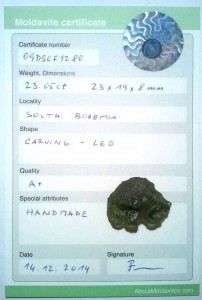 Moldavite certificate
Certificate number
Weight, Dimensions
23.05ct 23 x 19 x 8 mm
Locality
SOUTH BOHEMIA
Shape
CARVING - LEO
Quality
A+
Special attributes
HANDMADE
Date
Signature
14.12.2014
AboutMoldavites.com